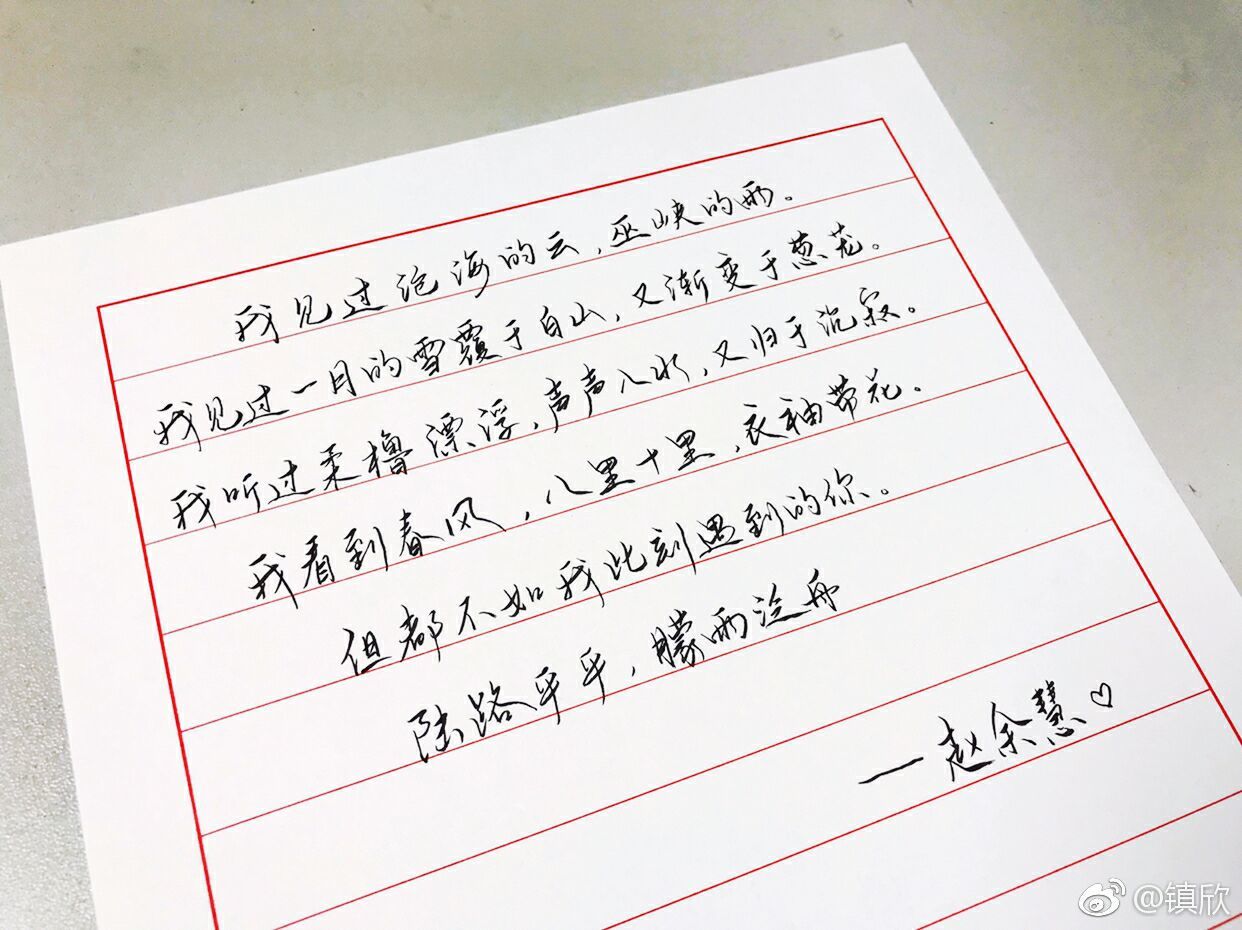 我见过沧海的云，巫峡的雨。
我见过一月的雪覆于白山，又渐变于葱茏。
我听过柔橹漂浮，声声入水，又归于沉寂。
我看到春风，八里十里，衣袖带花。
但都不如我此刻遇到的你。
陆路平平，朦雨泛舟
—赵余慧♡
@镇欣